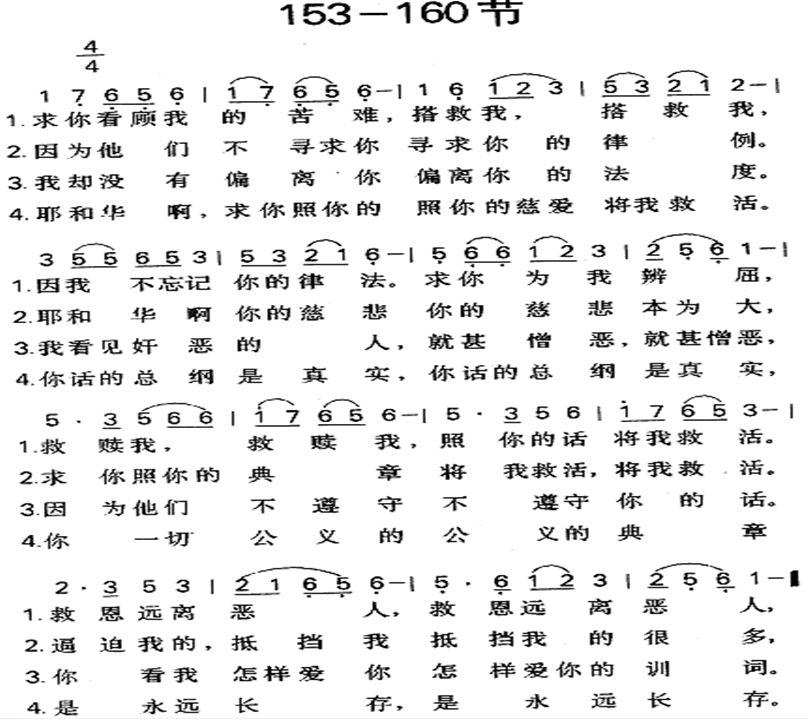 153-160节
4
4
1 7 6 5 6 | 1 7 6 5 6-| 1 6 1 2 3 | 5 3 2 1 2-|
1.求你看顾我的苦难,搭救我,搭救我,
2.因为他们不寻求你寻求你的律例。
3.我却没有偏离你偏离你的法度。
4.耶和华啊,求你照你的照你的慈爱将我救活。
3 5 5 6 5 3 | 5 3 2 1 6-| 5 6 6 1 2 3 | 2 5 6 1-|
1.因我不忘记你的律法。求你为我辨屈,
2.耶和华啊你的慈悲你的慈悲本为大,
3.我看见奸恶的人,就甚憎恶,就甚憎恶,
4.你话的总纲是真实,你话的总纲是真实,
5 · 3 5 6 6 | 1 7 6 5 6-| 5 · 3 5 6 | 1 7 6 5 3-|
1.救赎我,救赎我,照你的话将我救活。
2.求你照你的典章将我救活,将我救活。
3.因为他们不遵守不遵守你的话。
4.你一切公义的公义的典章
2 · 3 5 3 | 2 1 6 5 6-| 5 · 6 1 2 3 | 2 5 6 1-|
1.救恩远离恶人,救恩远离恶人,
2.逼迫我的,抵挡我抵挡我的很多,
3.你看我怎样爱你怎样爱你的训词。
4.是永远长存,是永远长存。